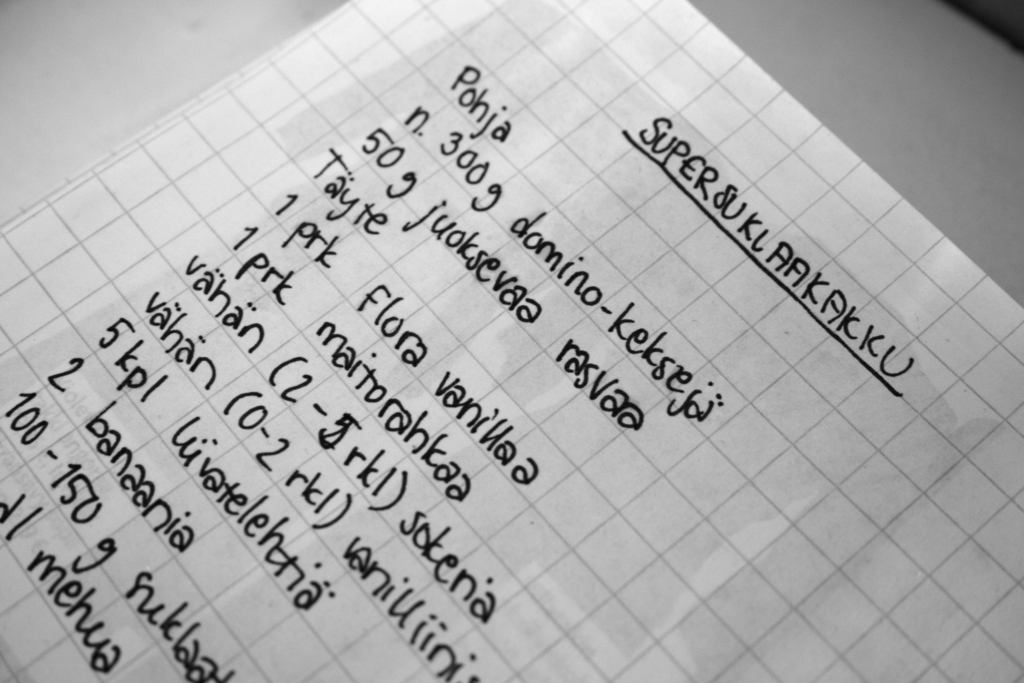 SUPERSUKLAAKAKKU
Pohja
n. 300g domino-keksejä
50g juoksevaa rasvaa
Täyte
1 prk flora vanillaa
1 prk maitorahkaa
vähän (2-5 rkl) sokeria
vähän (0-2 rkl)
5 kpl liivatelehtiä
2 banaania
100-150 g
dl mehua